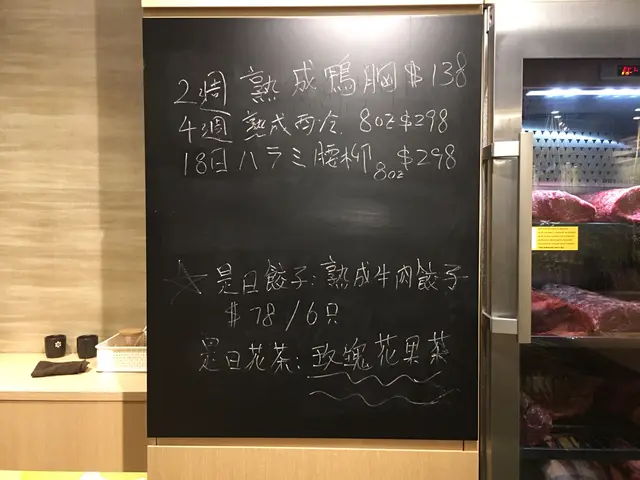 2週 熟成鴨胸 $138
4週 熟成西冷 8oz $298
18日 ハラミ 腰柳 8oz $298
☆ 是日餃子: 熟成牛肉餃子
$78/6只
是日花茶: 玫瑰花果茶